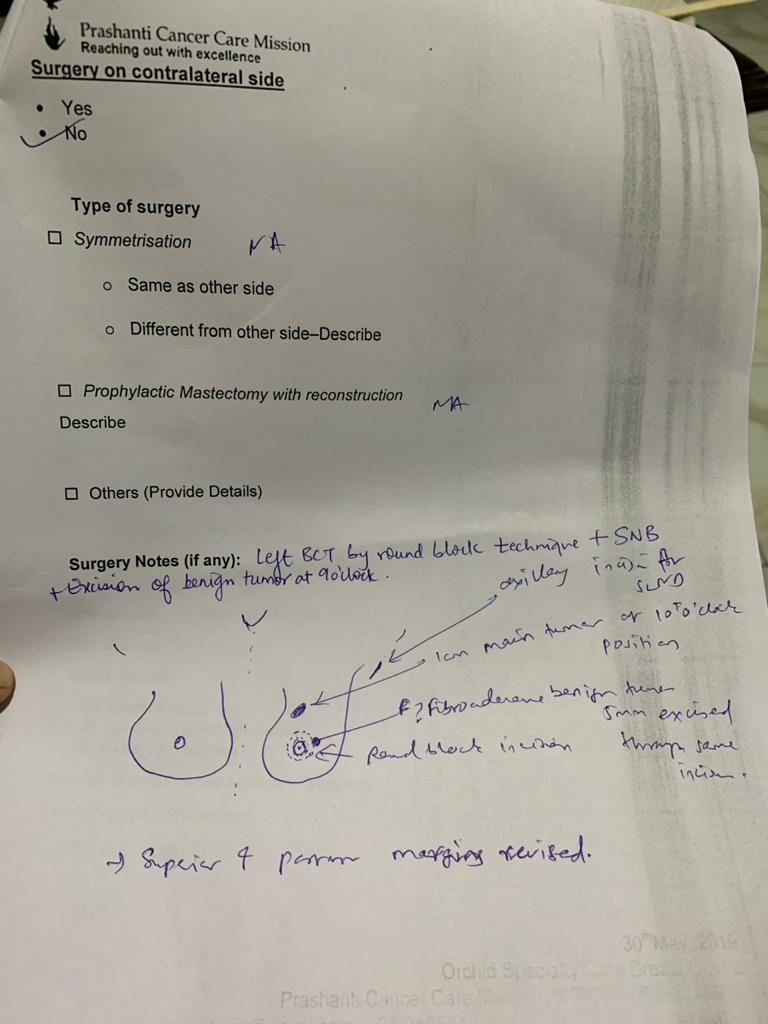 Prashanti Cancer Care Mission
Reaching out with excellence
Surgery on contralateral side
• Yes
• No
Type of surgery
☐ Symmetrisation NA
o Same as other side
o Different from other side–Describe
☐ Prophylactic Mastectomy with reconstruction NA
Describe
☐ Others (Provide Details)
Surgery Notes (if any): Left BCT by round block technique + SNB
+ Excision of benign tumor at 9o'clock.
axillary incision for
SLND
1cm main tumor at 10 o'clock
position
? Fibroadenoma benign tumor
5mm excised
through same
incision.
Round block incision
→ Superior & margins revised.
30th May, 2019
Orchid Specialty Breast
Prashanti Cancer Care Mission